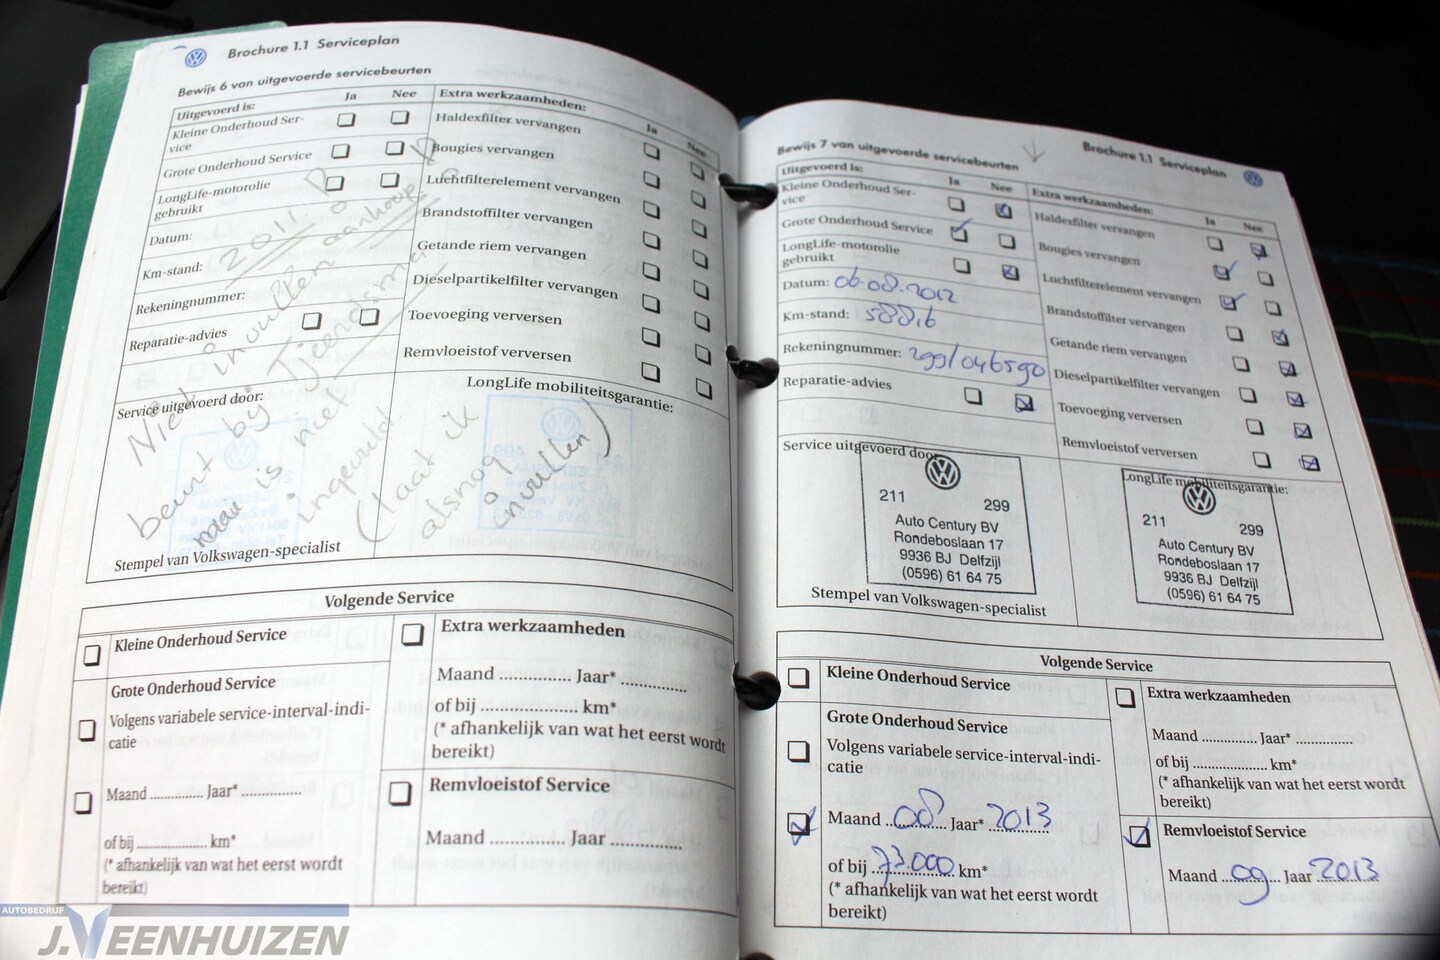 Brochure 1.1 Serviceplan
Bewijs 6 van uitgevoerde servicebeurten
Uitgevoerd is:
Ja
Nee
Kleine Onderhoud Ser-
vice
Grote Onderhoud Service
LongLife-motorolie
gebruikt
Datum:
Km-stand:
Rekeningnummer:
Reparatie-advies
Extra werkzaamheden:
Ja
Nee
Haldexfilter vervangen
Bougies vervangen
Luchtfilterelement vervangen
Brandstoffilter vervangen
Getande riem vervangen
Dieselpartikelfilter vervangen
Toevoeging verversen
Remvloeistof verversen
2011
Niet invullen
beurt bij Tjeerdsma
maar is niet
ingevuld
(laat ik
alsnog
invullen)
Service uitgevoerd door:
LongLife mobiliteitsgarantie:
Stempel van Volkswagen-specialist
Volgende Service
Kleine Onderhoud Service
Grote Onderhoud Service
Volgens variabele service-interval-indi-
catie
Maand ............ Jaar* ...............
of bij .................. km*
(* afhankelijk van wat het eerst wordt
bereikt)
Extra werkzaamheden
Maand .............. Jaar* ...............
of bij ........................... km*
(* afhankelijk van wat het eerst wordt
bereikt)
Remvloeistof Service
Maand .............. Jaar ...............
Brochure 1.1 Serviceplan
Bewijs 7 van uitgevoerde servicebeurten
Uitgevoerd is:
Ja
Nee
Kleine Onderhoud Ser-
vice
Grote Onderhoud Service
LongLife-motorolie
gebruikt
Datum: 06-08-2012
Km-stand: 58816
Rekeningnummer: 299/046590
Reparatie-advies
Extra werkzaamheden:
Ja
Nee
Haldexfilter vervangen
Bougies vervangen
Luchtfilterelement vervangen
Brandstoffilter vervangen
Getande riem vervangen
Dieselpartikelfilter vervangen
Toevoeging verversen
Remvloeistof verversen
Service uitgevoerd door
211
299
Auto Century BV
Rondeboslaan 17
9936 BJ Delfzijl
(0596) 61 64 75
Stempel van Volkswagen-specialist
LongLife mobiliteitsgarantie:
211
299
Auto Century BV
Rondeboslaan 17
9936 BJ Delfzijl
(0596) 61 64 75
Volgende Service
Kleine Onderhoud Service
Grote Onderhoud Service
Volgens variabele service-interval-indi-
catie
Maand 08 Jaar* 2013
of bij 73.000 km*
(* afhankelijk van wat het eerst wordt
bereikt)
Extra werkzaamheden
Maand .............. Jaar* ...............
of bij .................. km*
(* afhankelijk van wat het eerst wordt
bereikt)
Remvloeistof Service
Maand 09 Jaar 2013
AUTOBEDRIJF
J. VEENHUIZEN